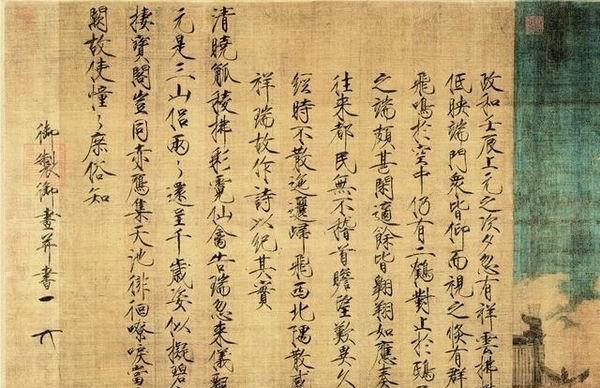 政和壬辰上元之次夕忽有祥雲拂
低映端門衆皆仰而視之倏有群
飛鳴於空中仍有二鶴對止於鴟
之端頗甚閑適餘皆翱翔如應奏
往來都民無不稽首瞻望歎異久
經時不散迤邐歸飛西北隅散感
祥瑞故作詩以紀其實
清曉觚稜拂彩霓仙禽告瑞忽來儀
元是三山侶兩〻還呈千歲姿似擬碧
棲寶閣豈同赤鴈集天池徘徊嘹唳當
闕故使憧〻庶俗知
御製御畫并書